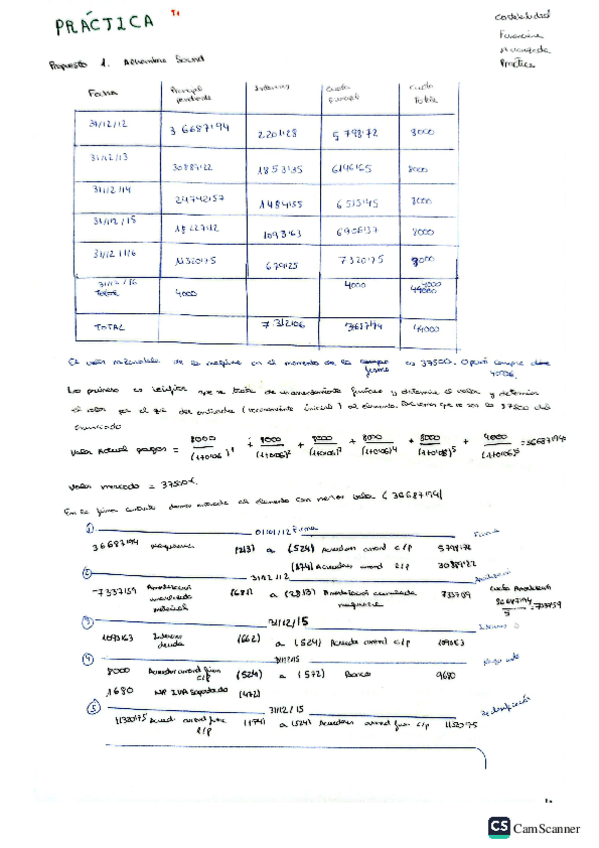 PRÁCTICA T1
Contabilidad
Financiera
Avanzada
Práctica
Propuesto 1. Alhambra Sound
Fecha Principal pendiente Intereses Cuota Cuota Total
31/12/12 36687'94 2201'28 5798'72 8000
31/12/13 30889'22 1853'35 6146'65 8000
31/12/14 24742'57 1484'55 6515'45 8000
31/12/15 18227'12 1093'63 6906'37 8000
31/12/16 11320'75 679'25 7320'75 8000
31/12/16 4000 4000 4000
TOTAL 7312'06 44000
El valor razonable de la máquina en el momento de la firma es 37500. Opción compra
Lo primero es que se trata de un arrendamiento financiero y
el valor por el que
Valor actual pagos = 8000/(1+0'06)^1 + 8000/(1+0'06)^2 + 8000/(1+0'06)^3 + 8000/(1+0'06)^4 + 8000/(1+0'06)^5 + 4000/(1+0'06)^5 = 36687'94
Valor mercado = 37500€.
elemento con menor valor (36687'94)
① 01/01/12 Firma Firma
36687'94 Maquinaria (213) a (524) Acreedores arrend c/p 5798'72
(174) Acreedores arrend l/p 30889'22
② 31/12/12 Amortización
7337'59 Amortización inmovilizado material (681) a (2813) Amortización acumulada maquinaria 7337'59
Cuota Amortización
36687'94/5 = 7337'59
③ 31/12/15 Intereses
1093'63 Intereses deuda (662) a (524) Acreedor arrend c/p 1093'63
④ 31/12/15 Pago cuota
8000 Acreedor arrend fin c/p (524) a (572) Banco 9680
1680 HP IVA Soportado (472)
⑤ 31/12/15 Reclasificación
11320'75 Acreed. arrend fin l/p (174) a (524) Acreedores arrend fin c/p 11320'75
CS CamScanner